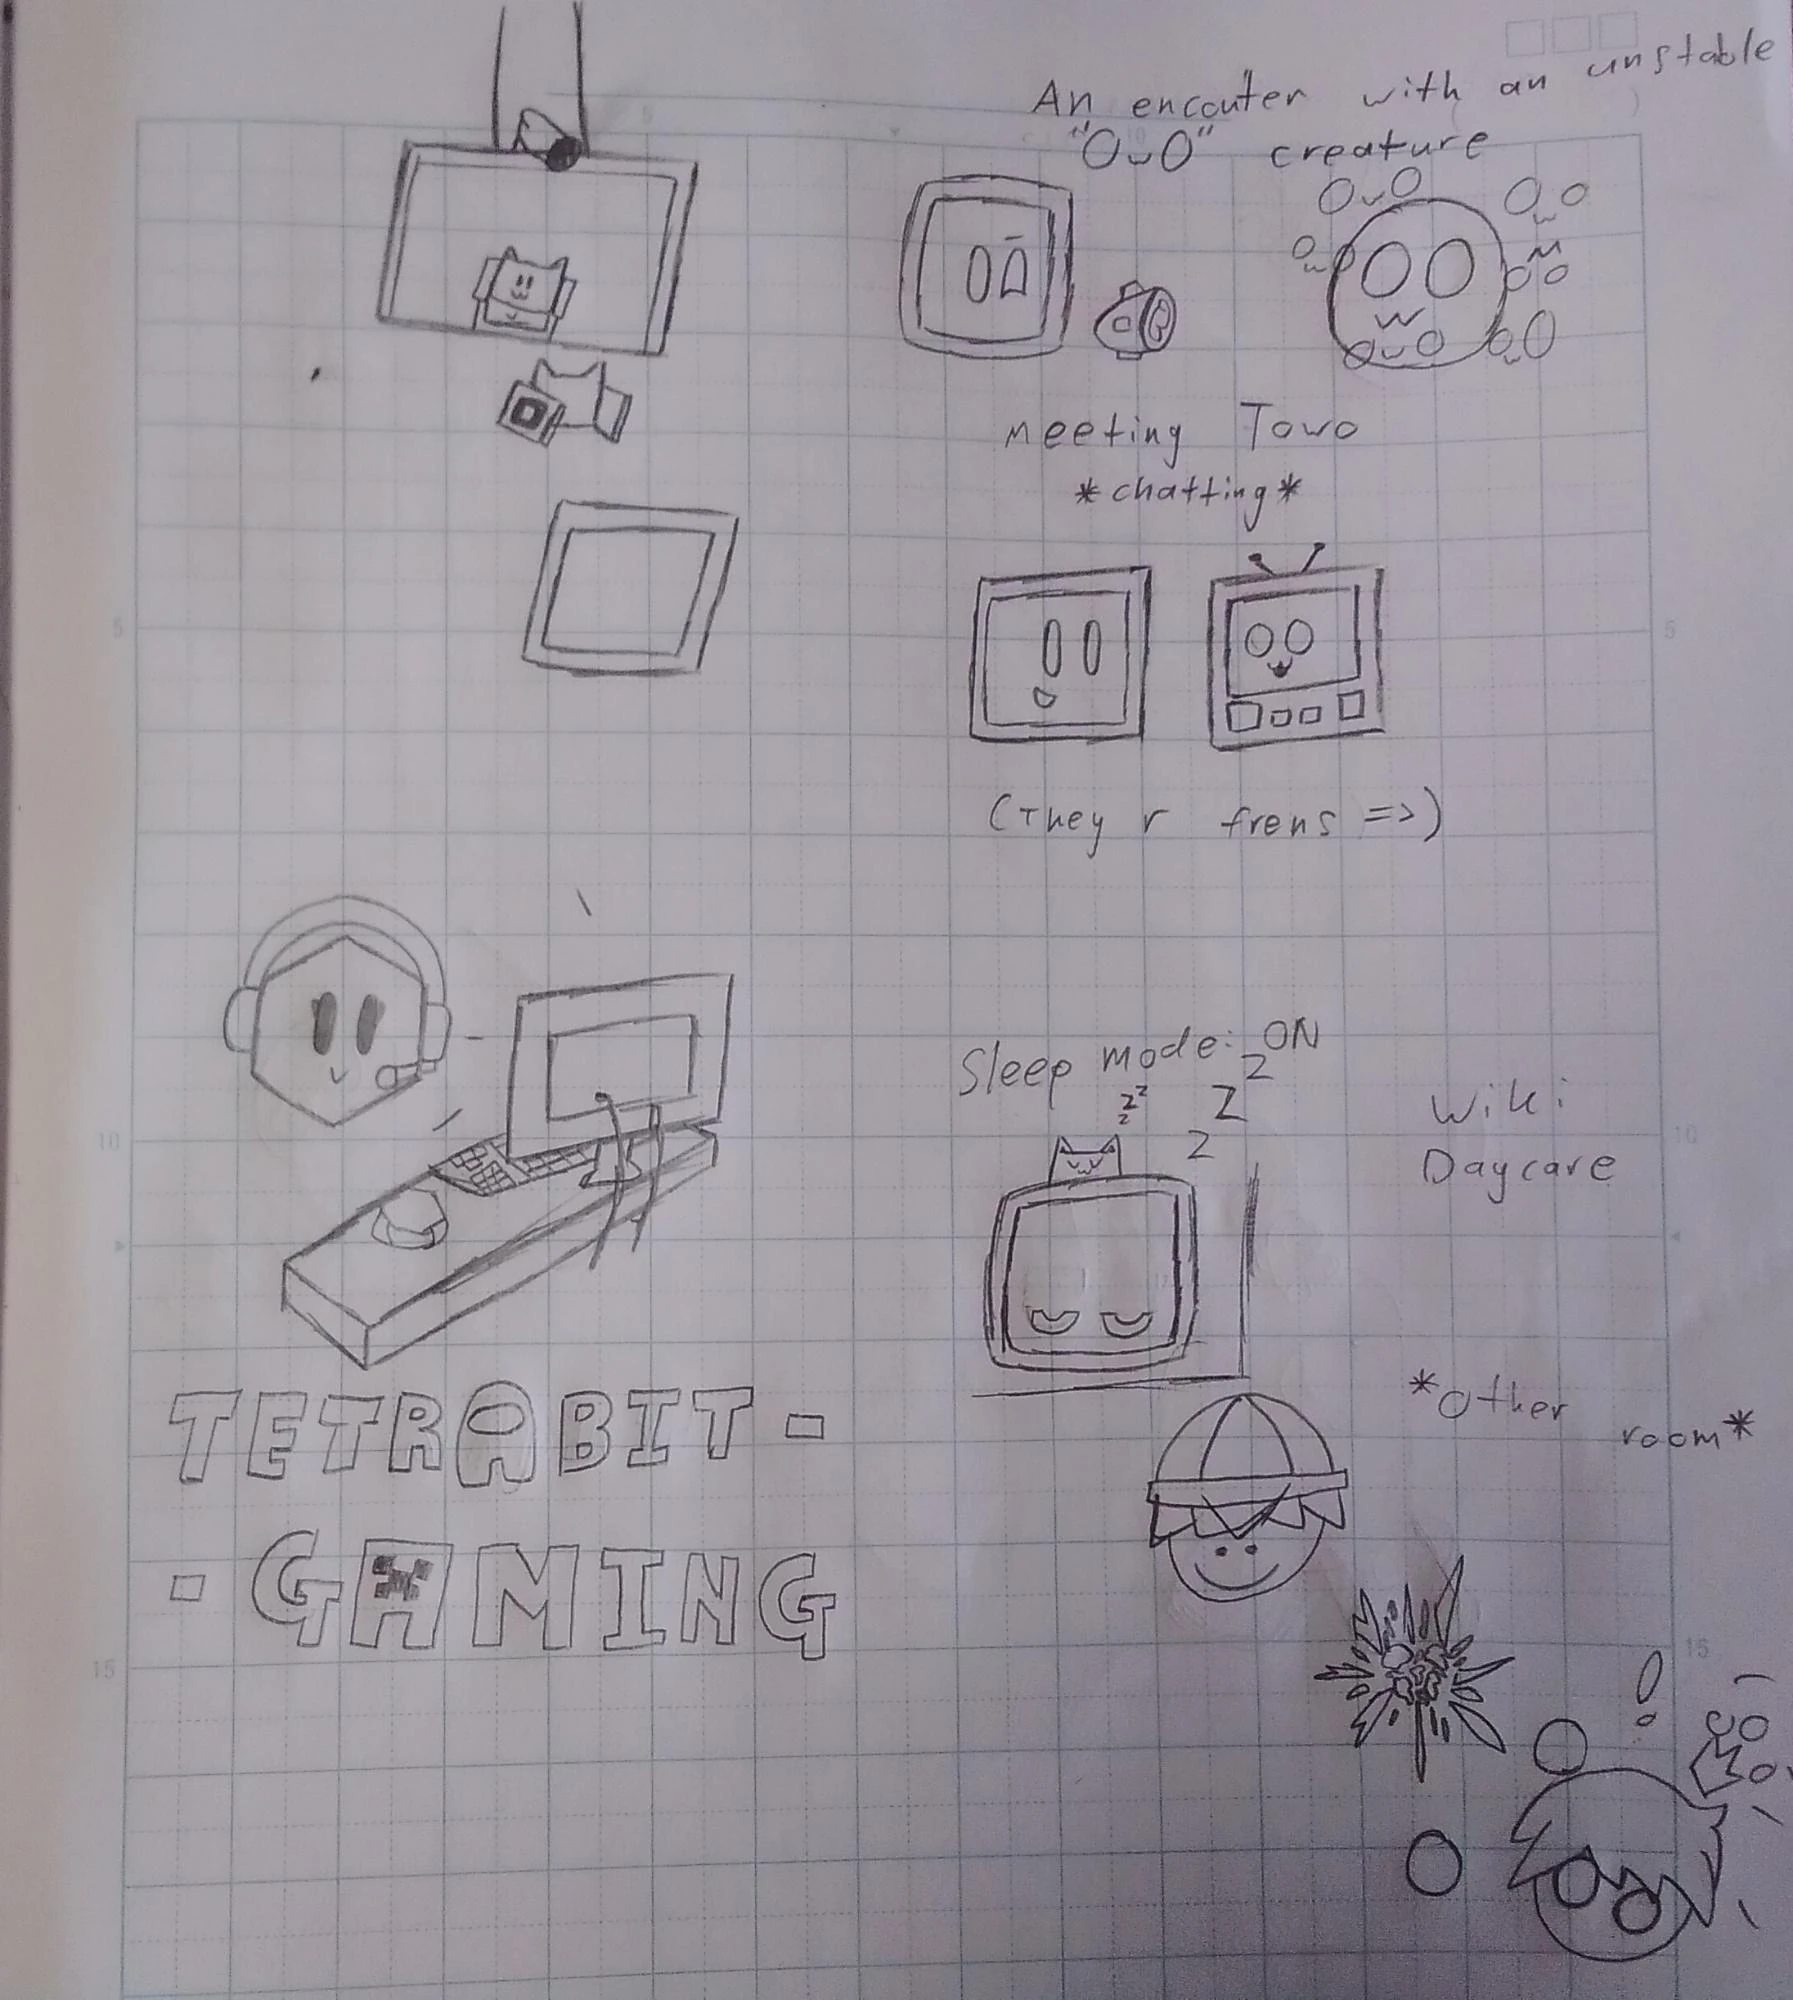 An encouter with an unstable
"OuO" creature
OvO
OwO
OwO
OuO
OuO
Meeting Towo
*chatting*
(They r frens =>)
Sleep mode: ON
zzz
z z z
Wiki
Daycare
*Other
room*
TETRABIT-
-GAMING
5
10
15
5
10
15